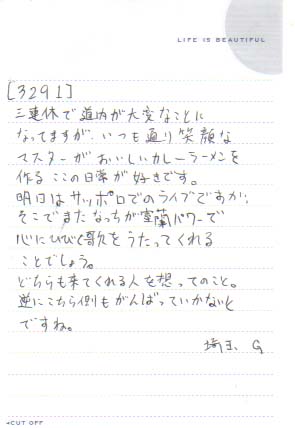 LIFE IS BEAUTIFUL
[3291]
三連休で道内が大変なことに
なってますが、いつも通り笑顔な
マスターがおいしいカレーラーメンを
作るここの日常が好きです。
明日はサッポロでのライブですが、
そこでまたなっちが室蘭パワーで
心にひびく歌をうたってくれる
ことでしょう。
どちらも来てくれる人を想ってのこと。
逆にこちら側もがんばっていかないと
ですね。
埼玉 G
◂CUT OFF